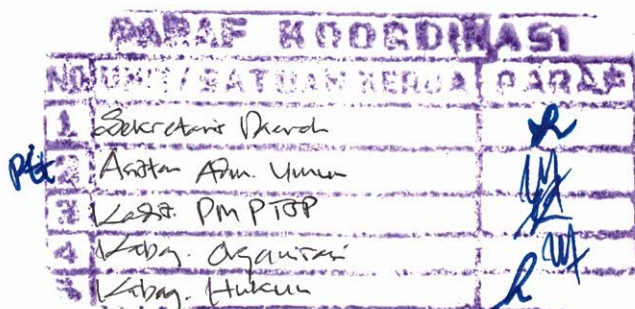 PARAF KOORDINASI
NO UNIT / SATUAN KERJA PARAF
1 Sekretaris Daerah
Plt 2 Asisten Adm. Umum
3 Kadis. PMPTSP
4 Kabag. Organisasi
5 Kabag. Hukum